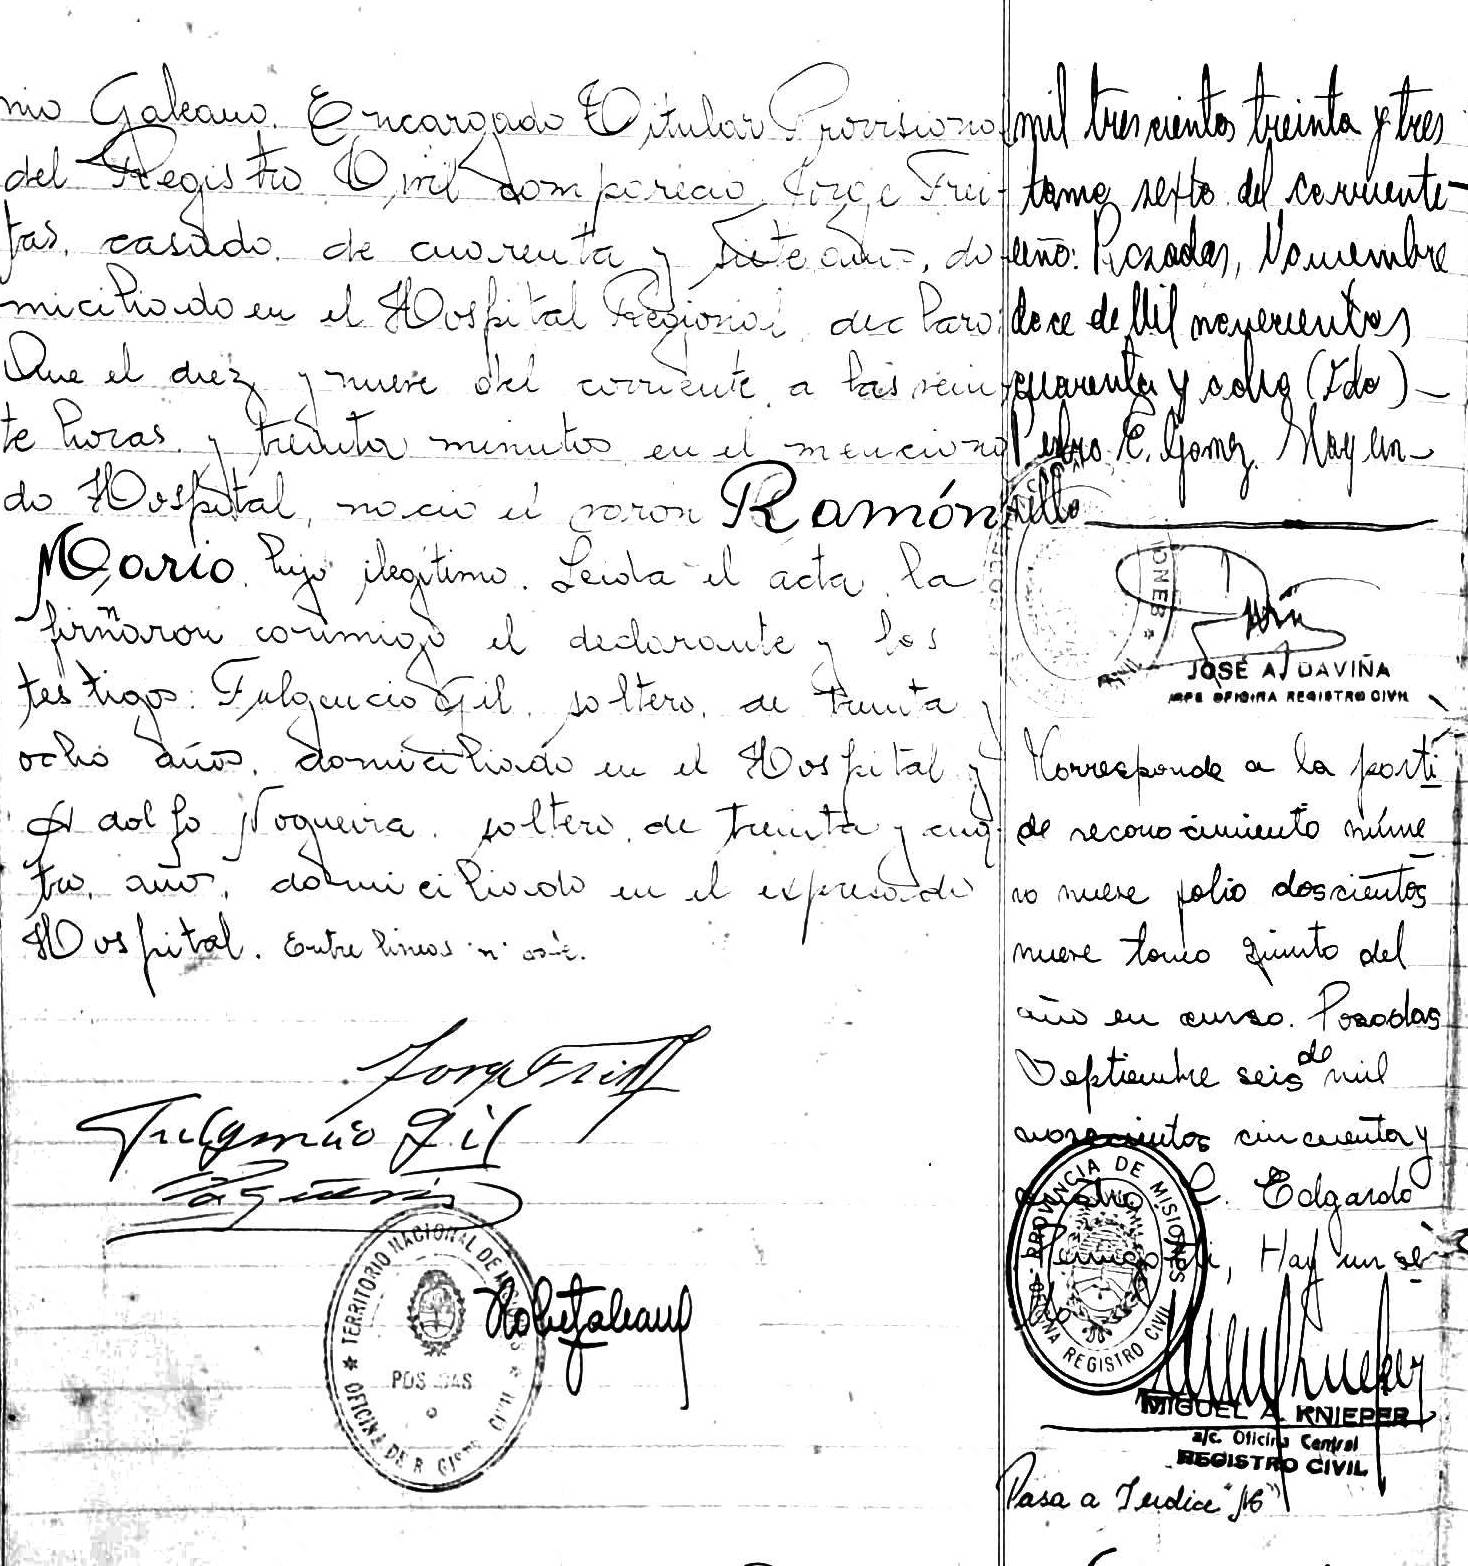 nio Galeano, Encargado Titular Provisiono
del Registro Civil comparecio, Jorge Frei-
tas, casado, de cuarenta y siete años, do-
miciliado en el Hospital Regional, declaro:
Que el diez y nueve del corriente, a las vein-
te horas y treinta minutos en el menciona
do Hospital, nacio el varon Ramón
Mario, hijo ilegitimo. Leida el acta, la
firmaron conmigo el declarante y los
testigos: Fulgencio Gil, soltero, de treinta y
ocho años, domiciliado en el Hospital y
Adolfo Nogueira, soltero, de treinta y cua-
tro, años, domiciliado en el expresado
Hospital. Entre lineas "n" vale.
Fulgencio Gil
TERRITORIO NACIONAL DE MISIONES
POSADAS
OFICINA DE REGISTRO CIVIL
mil trescientos treinta y tres
tomo sexto del corriente-
año: Posadas, Noviembre
doce de Mil novecientos
cuarenta y ocho (Fdo)-
Pedro E. Gomez. Hay un-
sello
JOSÉ A. DAVIÑA
JEFE OFICINA REGISTRO CIVIL
Corresponde a la parti
de reconocimiento núme
ro nueve folio doscientos
nueve tomo quinto del
año en curso. Posadas
Septiembre seis de mil
novecientos cincuenta y
C. Edgardo
Hay un se
PROVINCIA DE MISIONES
OFICINA REGISTRO CIVIL
MIGUEL A. KNIEPER
a/c. Oficina Central
REGISTRO CIVIL
Pasa a Indice "16"